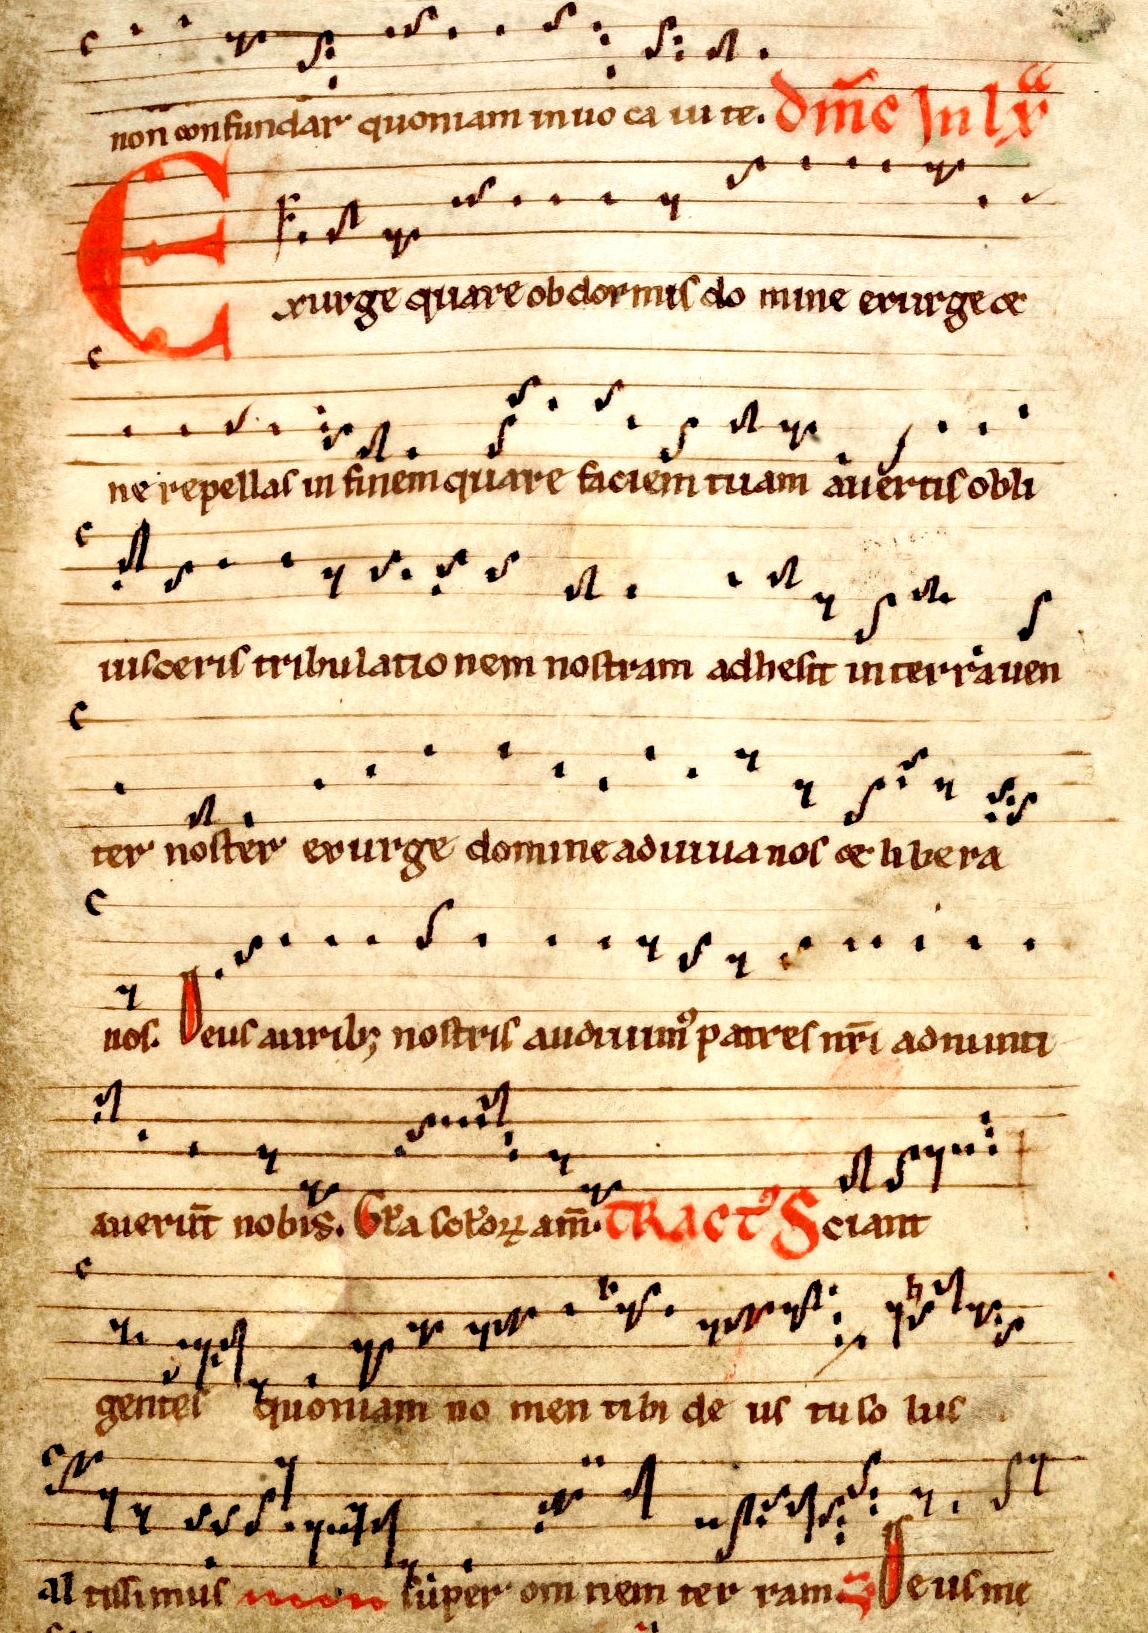 non confundar quoniam inuo ca ui te. Dm̄c In lxᵃ
Exurge quare obdormis do mine exurge &
ne repellas in finem quare faciem tuam auertis obli
uisceris tribulatio nem nostram adhesit in terra uen
ter noster exurge domine adiuua nos & libe ra
nos. Deus aurib; nostris audiuim⁹ patres nr̄i adnunti
auerūt nobis. Gl'a scłoꝝ am̄. TRACT⁹ Sciant
gentes quoniam no men tibi de us tu so lus
al tissimus super om nem ter ram. Deus me